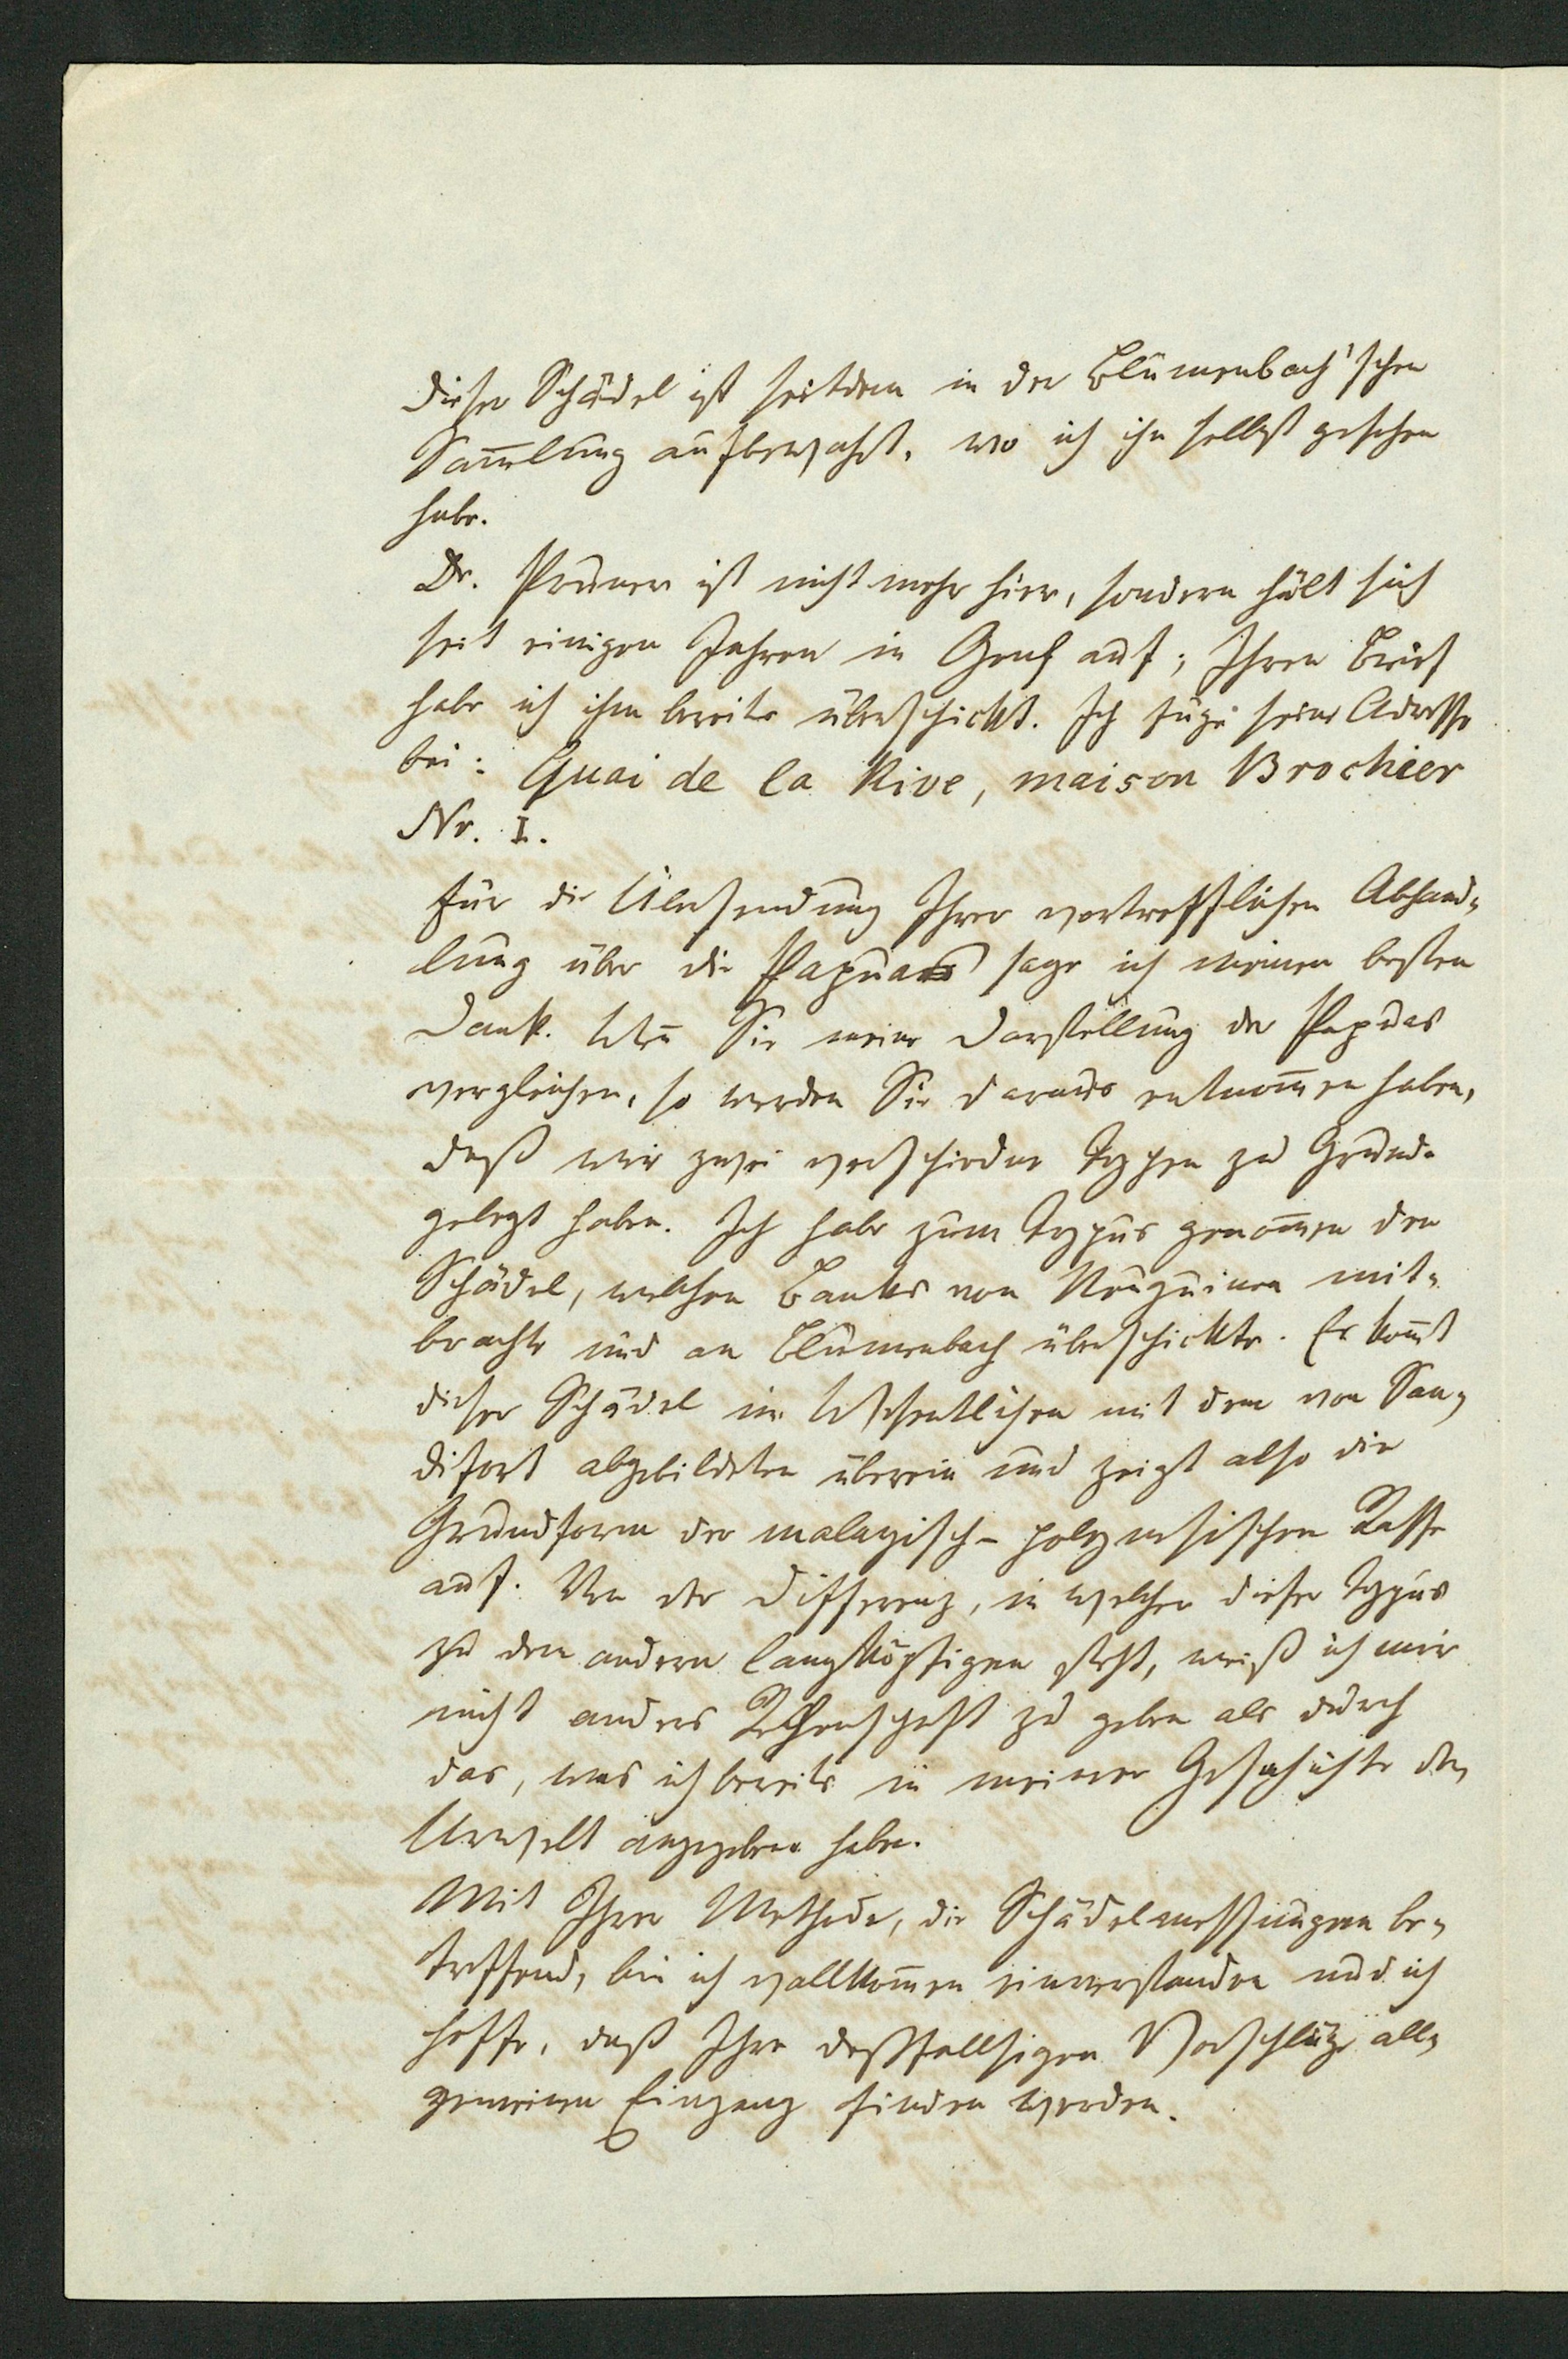 dieser Schädel ist seitdem in der Blumenbach'schen
Sam̄lung aufbewahrt, wo ich ihn selbst gesehen
habe.
Dr. Pruner ist nicht mehr hier, sondern hält sich
seit einigen Jahren in Genf auf; Ihren Brief
habe ich ihm bereits überschickt. Ich füge seine Adresse
bei: Quai de la Rive, maison Brochier
Nr. I.
Für die Übersendung Ihrer vortrefflichen Abhand-
lung über die Papuas sage ich meinen besten
Dank. Wen̄ Sie meine Darstellung der Papuas
vergleichen, so werden Sie daraus entnom̄en haben,
daß wir zwei verschiedne Typen zu Grunde
gelegt haben. Ich habe zum Typus genom̄en den
Schädel, welchen Banks von Neuguinea mit-
brachte und an Blumenbach überschickte. Es kom̄t
dieser Schädel im Wesentlichen mit dem von San-
difort abgebildeten überein und zeigt also die
Grundform der malayisch-polynesischen Rasse
auf. Von der Differenz, in welcher dieser Typus
zu den andern langköpfigen steht, weiß ich mir
nicht anders Rechenschaft zu geben als durch
das, was ich bereits in meiner Geschichte der
Urwelt angegeben habe.
Mit Ihrer Methode, die Schädelmessungen be-
treffend, bin ich vollkom̄en einverstanden und ich
hoffe, daß Ihre deßfallsigen Vorschläge all-
gemeinen Eingang finden werden.